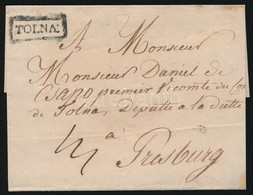 TOLNA.
A Monsieur
Monsieur Daniel de
Csapo premier Vicomte du Co
de Tolna, Deputte a la Diette
a
Presburg